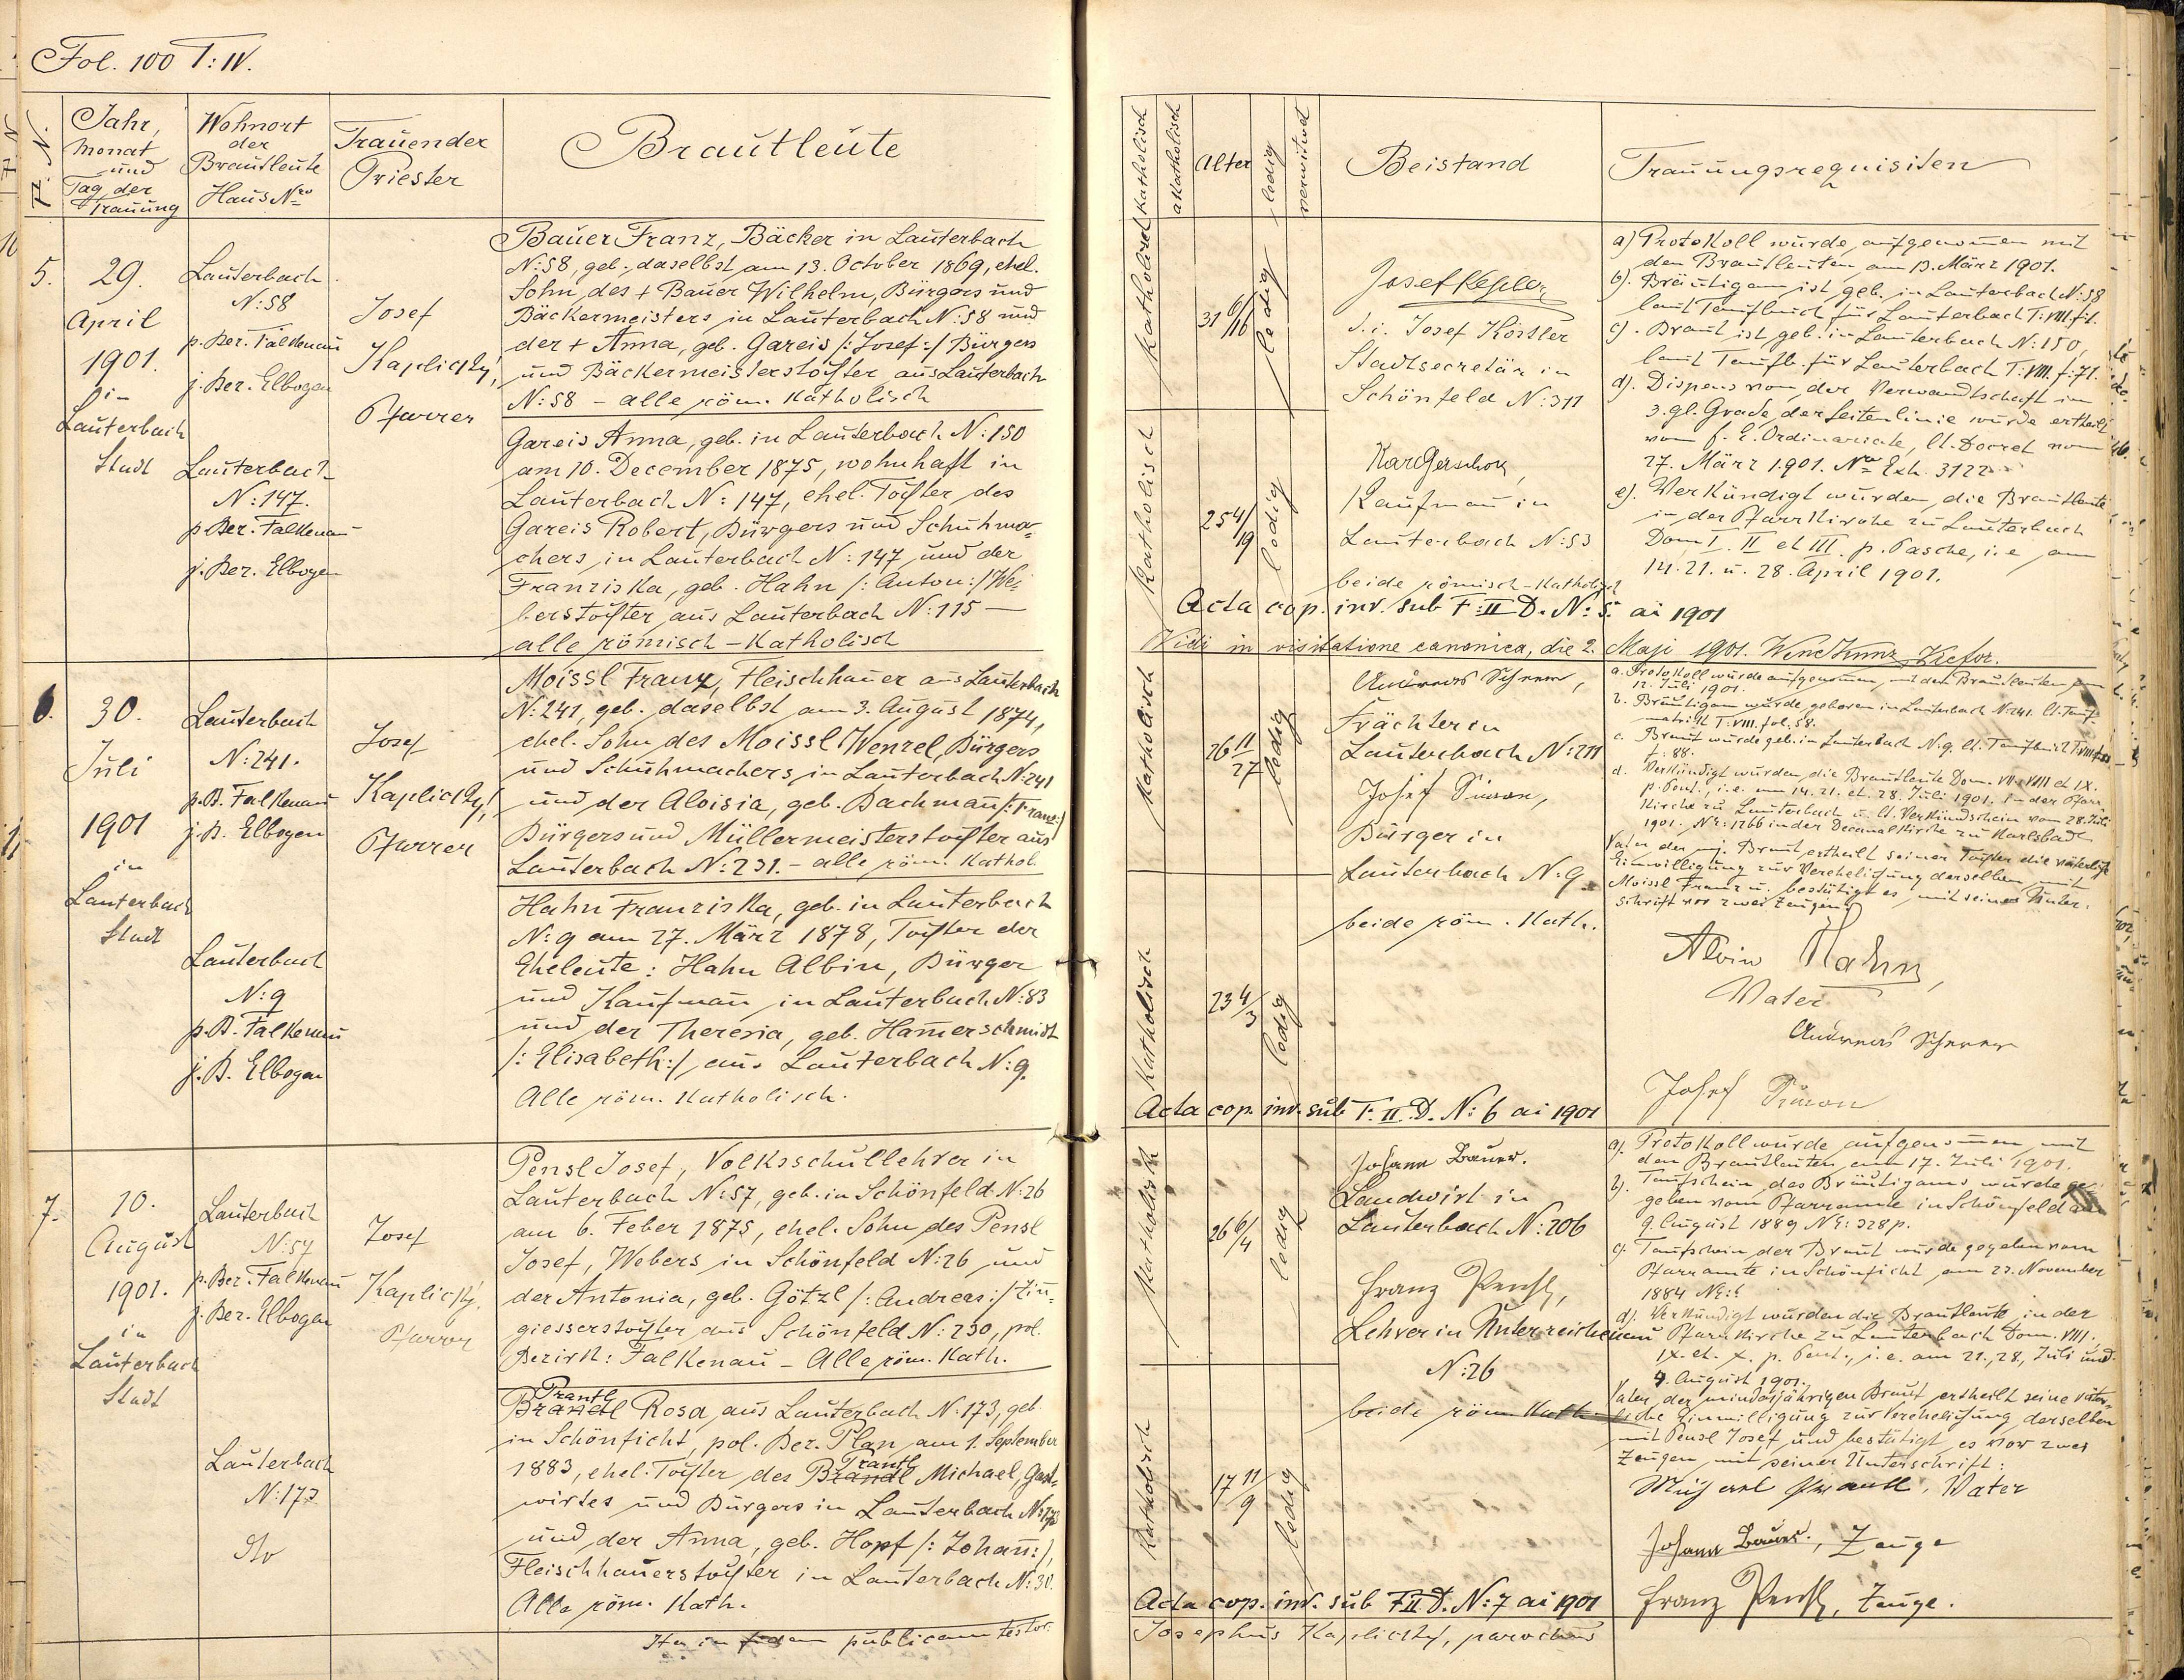 Fol. 100 T: IV.
Jahr,
Monat
und
Tag der
Trauung
Wohnort
der
Brautleute
Haus Nro
Trauender
Priester
Brautleute
5.
29.
April
1901.
in
Lauterbach
Stadt
Lauterbach
N: 58
p. Bez. Falkenau
j. Bez. Elbogen
Lauterbach
N: 147.
p. Bez. Falkenau
j. Bez. Elbogen
Josef
Kaplický,
Pfarrer
Bauer Franz, Bäcker in Lauterbach
N: 58, geb. daselbst am 13. October 1869, ehel.
Sohn des + Bauer Wilhelm, Bürgers und
Bäckermeisters in Lauterbach N: 58 und
der + Anna, geb. Gareis /: Josef :/ Bürgers
und Bäckermeisterstochter aus Lauterbach
N: 58 – alle röm. katholisch
Gareis Anna, geb. in Lauterbach N: 150
am 10. December 1875, wohnhaft in
Lauterbach N: 147, ehel. Tochter des
Gareis Robert, Bürgers und Schuhma-
chers in Lauterbach N: 147 und der
Franziska, geb. Hahn /: Anton :/ We-
berstochter aus Lauterbach N: 115 –
alle römisch-katholisch
6.
30.
Juli
1901
in
Lauterbach
Stadt
Lauterbach
N: 241.
p. B. Falkenau
j. B. Elbogen
Lauterbach
N: 9
p. B. Falkenau
j. B. Elbogen
Josef
Kaplický,
Pfarrer
Moissl Franz, Fleischhauer aus Lauterbach
N: 241, geb. daselbst am 3. August 1874,
ehel. Sohn des Moissl Wenzel, Bürgers
und Schuhmachers in Lauterbach N: 241
und der Aloisia, geb. Bachmann /: Franz :/
Bürgers und Müllermeisterstochter aus
Lauterbach N: 231. – alle röm. kathol.
Hahn Franziska, geb. in Lauterbach
N: 9 am 27. März 1878, Tochter der
Eheleute: Hahn Albin, Bürger
und Kaufmann in Lauterbach N: 83
und der Theresia, geb. Hamerschmidt
/: Elisabeth :/ aus Lauterbach N: 9.
Alle röm. katholisch.
7.
10.
August
1901.
in
Lauterbach
Stadt
Lauterbach
N: 57
p. Bez. Falkenau
j. Bez. Elbogen
Lauterbach
N: 173
Josef
Kaplický,
Pfarrer
Pensl Josef, Volksschullehrer in
Lauterbach N: 57, geb. in Schönfeld N: 26
am 6. Feber 1875, ehel. Sohn des Pensl
Josef, Webers in Schönfeld N: 26 und
der Antonia, geb. Götzl /: Andreas :/ Zin-
giesserstochter aus Schönfeld N: 230, pol.
Bezirk: Falkenau – Alle röm. kath.
Prantl
Brandl Rosa aus Lauterbach N: 173, geb.
in Schönficht, pol. Bez. Plan am 1. September
Prantl
1883, ehel. Tochter des Brandl Michael, Gast-
wirtes und Bürgers in Lauterbach N: 173
und der Anna, geb. Hopf /: Johann :/,
Fleischhauerstochter in Lauterbach N: 30.
Alle röm. kath.
Ita in fidem publicam testor.
katholisch
akatholisch
Alter
ledig
verwitwet
Beistand
Trauungsrequisiten
katholisch
31 6/16
ledig
Josef Kössler
d. i. Josef Kössler
Stadtsecretär in
Schönfeld N: 311
katholisch
25 4/19
ledig
Kaufmann in
Lauterbach N: 53
beide römisch-katholisch
a) Protokoll wurde aufgenommen mit
den Brautleuten am 13. März 1901.
b). Bräutigam ist geb. in Lauterbach N: 58
laut Taufbuch für Lauterbach T. VIII. f.
c). Braut ist geb. in Lauterbach N: 150,
laut Taufb. für Lauterbach T. VIII. f: 71.
d). Dispens von der Verwandtschaft im
3. gl. Grade der Seitenlinie wurde ertheilt
vom f. e. Ordinariate, lt. Decret vom
27. März 1901. Nro Exh. 3122
e). Verkündigt wurden die Brautleute
in der Pfarrkirche zu Lauterbach
Dom I. II et III. p. Pascha, i. e. am
14. 21. u. 28. April 1901.
Acta cop. inv. sub F: II D. N: 5. ai 1901
Vidi in visitatione canonica, die 2. Maji 1901.
katholisch
26 11/27
ledig
Andreas
Lauterbach N: 211
Josef Simon,
Bürger in
Lauterbach N: 9
beide röm. kath.
katholisch
23 4/3
ledig
a. Protokoll wurde aufgenommen mit den Brautleuten am
12. Juli 1901.
b. Bräutigam wurde geboren in Lauterbach N: 241. lt. Tauf-
matrik T. VIII. fol. 58.
c. Braut wurde geb. in Lauterbach N. 9. lt. Taufbuch T. VIII
f. 88.
d. Verkündigt wurden die Brautleute Dom. VII. VIII et IX.
p. Pent., i. e. am 14. 21. et. 28. Juli 1901. in der Pfarr-
kirche zu Lauterbach u. lt. Verkündschein vom 28. Juli
1901. NE: 1766 in der Decanalkirche zu Karlsbad
Vater der mj. Braut ertheilt seiner Tochter die väterliche
Einwilligung zur Verehelichung derselben mit
Moissl Franz u. bestätigt es mit seiner Unter-
schrift vor zwei Zeugen:
Albin Hahn,
Vater
Andreas
Josef Simon
Acta cop. inv. sub F. II. D. N: 6 ai 1901
katholisch
26 6/4
ledig
Johann Bauer.
Landwirt in
Lauterbach N: 206
Franz Pensl,
Lehrer in Unterreichenau
N: 26
beide röm. kath.
katholisch
17 11/9
ledig
a). Protokoll wurde aufgenommen mit
den Brautleuten am 17. Juli 1901.
b). Taufschein des Bräutigams wurde ge-
geben vom Pfarramte in Schönfeld am
9. August 1889 NE: 328 p.
c). Taufschein der Braut wurde gegeben vom
Pfarramte in Schönficht am 23. November
1884
d). Verkündigt wurden die Brautleute in der
Pfarrkirche zu Lauterbach Dom. VIII.
IX. et. X. p. Pent., i. e. am 21., 28., Juli und
4. August 1901.
Vater der minderjährigen Braut ertheilt seine väter-
liche Einwilligung zur Verehelichung derselben
mit Pensl Josef und bestätigt es vor zwei
Zeugen mit seiner Unterschrift:
Michael Prantl, Vater
Johann Bauer., Zeuge
Franz Pensl, Zeuge.
Acta cop. inv. sub F II D. N: 7 ai 1901
Josephus Kaplický, parochus